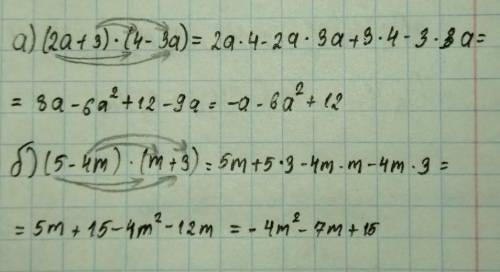 а) (2a+3)·(4-3a)= 2a·4-2a·3a+3·4-3·3a=
= 8a-6a²+12-9a= -a-6a²+12
б) (5-4m)·(m+3)=5m+5·3-4m·m-4m·3=
=5m+15-4m²-12m =-4m²-7m+15